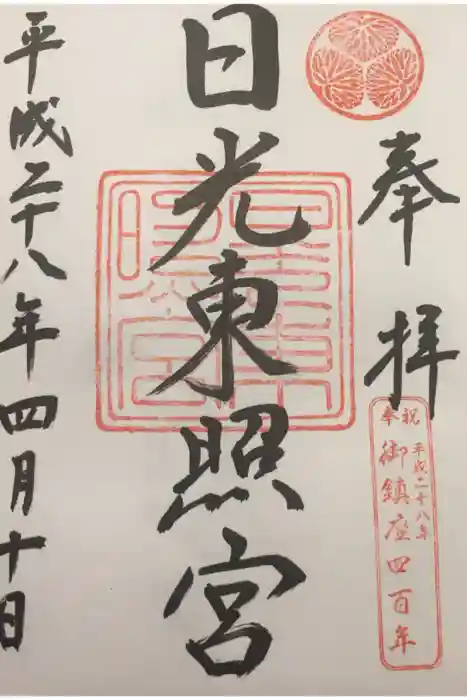 奉拝
奉祝
平成二十八年
御鎮座四百年
日光東照宮
東照宮
平成二十八年四月十日